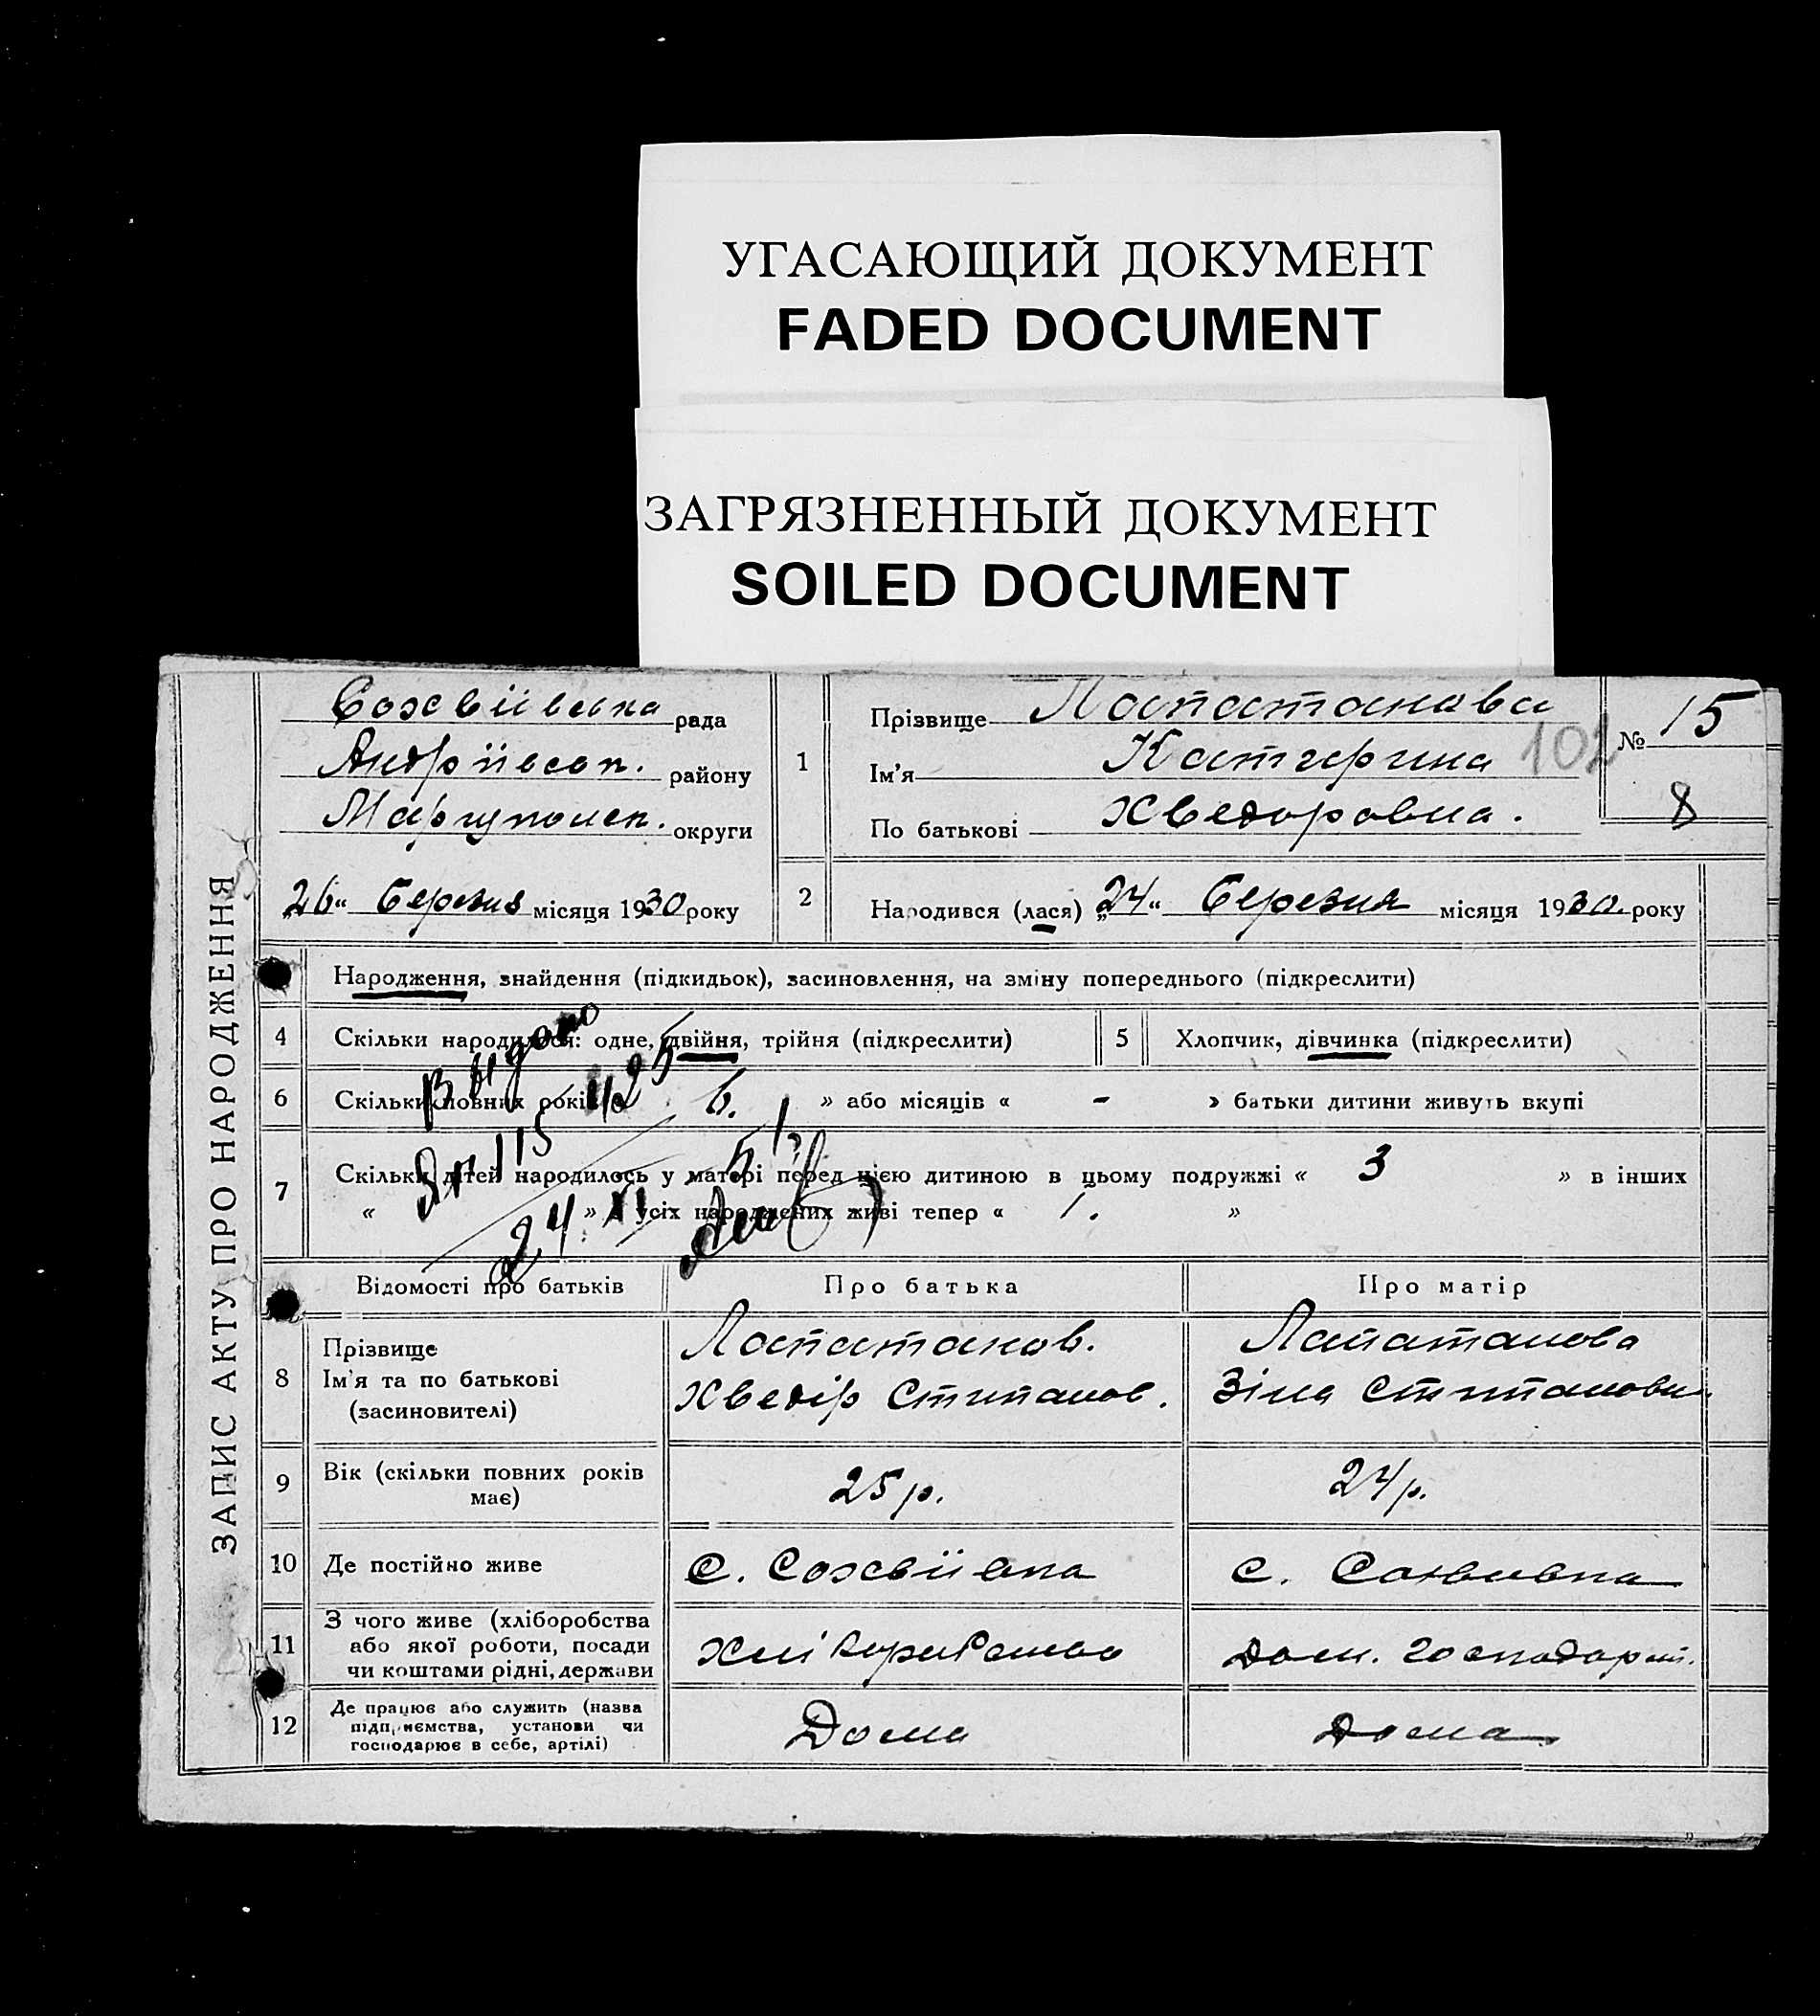 УГАСАЮЩИЙ ДОКУМЕНТ
FADED DOCUMENT
ЗАГРЯЗНЕННЫЙ ДОКУМЕНТ
SOILED DOCUMENT
ЗАПИС АКТУ ПРО НАРОДЖЕННЯ
рада
Андріївськ. району
Маріупольск. округи
26 " Березня місяця 1930 року
1
Прізвище Лапатанова
Ім'я Катерина
По батькові Хведоровна.
102
№ 15
8
2 Народився (лася) „24 " Березня місяця 1930. року
Народження, знайдення (підкидьок), засиновлення, на зміну попереднього (підкреслити)
4 Скільки народилося: одне, двійня, трійня (підкреслити)
5 Хлопчик, дівчинка (підкреслити)
6 Скільки повних років 6. » або місяців « - » батьки дитини живуть вкупі
7 Скільки дітей народилось у матері перед цією дитиною в цьому подружжі « 3 » в інших
« » з усіх народжених живі тепер « 1. »
Выдано
24. XI
Відомості про батьків Про батька Про матір
8 Прізвище
Ім'я та по батькові
(засиновителі)
Лапатанов.
Хведір Степанов.
Лапатанова
Зіна Степанова
9 Вік (скільки повних років
має)
25 р.
24 р.
10 Де постійно живе
11 З чого живе (хліборобства
або якої роботи, посади
чи коштами рідні, держави
Хліборобство
Дом. господарст.
12 Де працює або служить (назва
підприємства, установи чи
господарює в себе, артілі)
Дома
Дома